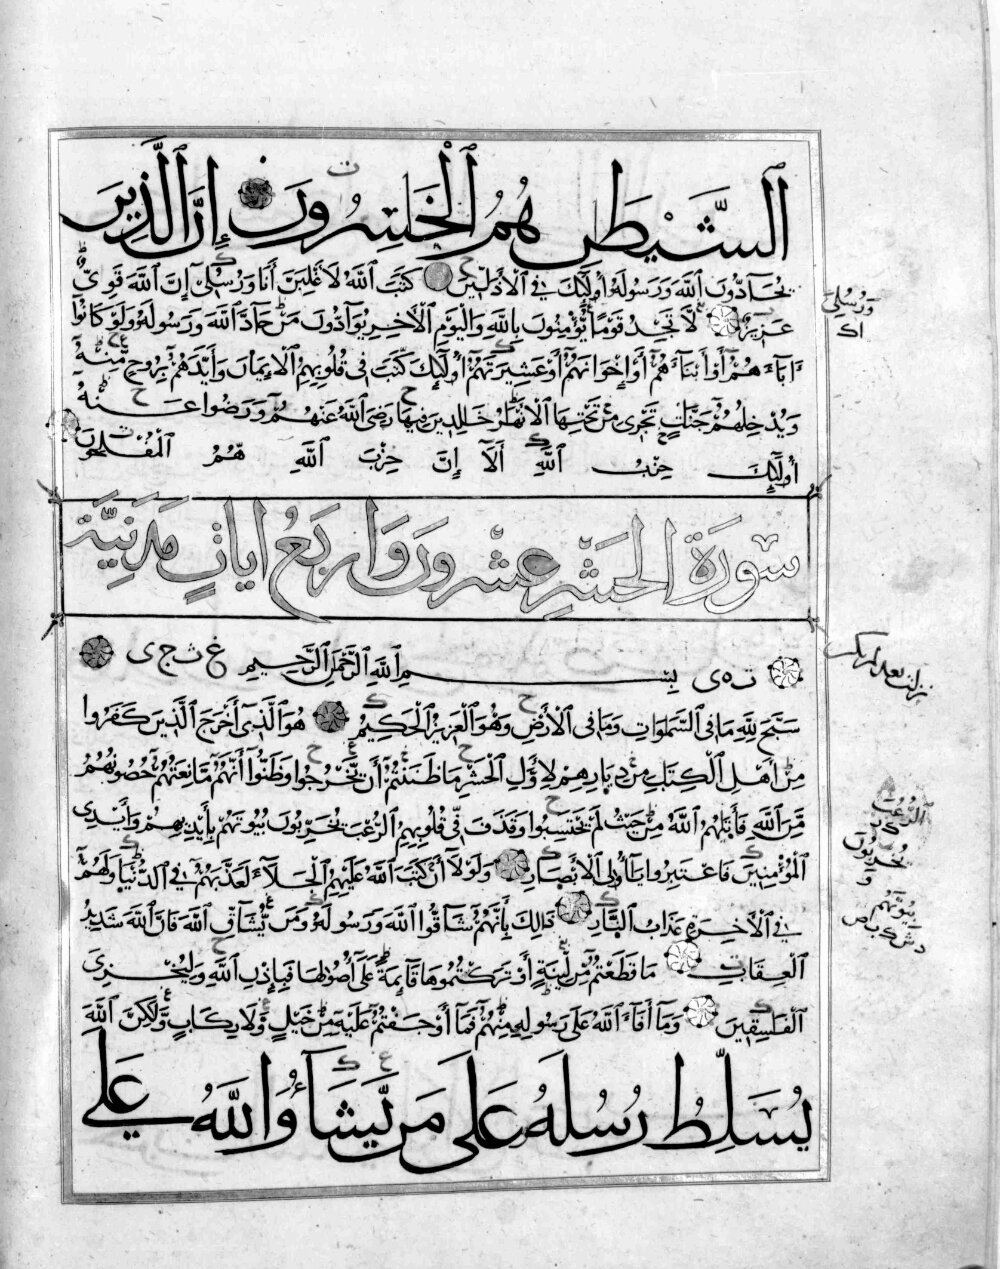 ٱلشَّيْطَٰنِ هُمُ ٱلْخَٰسِرُونَ إِنَّ ٱلَّذِينَ
يُحَآدُّونَ ٱللَّهَ وَرَسُولَهُ أُو۟لَٰٓئِكَ فِى ٱلْأَذَلِّينَ كَتَبَ ٱللَّهُ لَأَغْلِبَنَّ أَنَا۠ وَرُسُلِىٓ إِنَّ ٱللَّهَ قَوِىٌّ
عَزِيزٌ لَا تَجِدُ قَوْمًا يُؤْمِنُونَ بِٱللَّهِ وَٱلْيَوْمِ ٱلْآخِرِ يُوَآدُّونَ مَنْ حَآدَّ ٱللَّهَ وَرَسُولَهُ وَلَوْ كَانُوٓا
ءَابَآءَهُمْ أَوْ أَبْنَآءَهُمْ أَوْ إِخْوَانَهُمْ أَوْ عَشِيرَتَهُمْ أُو۟لَٰٓئِكَ كَتَبَ فِى قُلُوبِهِمُ ٱلْإِيمَانَ وَأَيَّدَهُمْ بِرُوحٍ مِنْهُ
وَيُدْخِلُهُمْ جَنَّاتٍ تَجْرِى مِنْ تَحْتِهَا ٱلْأَنْهَارُ خَالِدِينَ فِيهَا رَضِىَ ٱللَّهُ عَنْهُمْ وَرَضُوا عَنْهُ
أُو۟لَٰٓئِكَ حِزْبُ ٱللَّهِ أَلَآ إِنَّ حِزْبَ ٱللَّهِ هُمُ ٱلْمُفْلِحُونَ
سورة الحشر عشرون واربع ايات مدنية
بِسْمِ ٱللَّهِ ٱلرَّحْمَٰنِ ٱلرَّحِيمِ
سَبَّحَ لِلَّهِ مَا فِى ٱلسَّمَٰوَاتِ وَمَا فِى ٱلْأَرْضِ وَهُوَ ٱلْعَزِيزُ ٱلْحَكِيمُ هُوَ ٱلَّذِىٓ أَخْرَجَ ٱلَّذِينَ كَفَرُوا
مِنْ أَهْلِ ٱلْكِتَابِ مِنْ دِيَارِهِمْ لِأَوَّلِ ٱلْحَشْرِ مَا ظَنَنْتُمْ أَنْ يَخْرُجُوا وَظَنُّوٓا أَنَّهُمْ مَانِعَتُهُمْ حُصُونُهُمْ
مِنَ ٱللَّهِ فَأَتَىٰهُمُ ٱللَّهُ مِنْ حَيْثُ لَمْ يَحْتَسِبُوا وَقَذَفَ فِى قُلُوبِهِمُ ٱلرُّعْبَ يُخْرِبُونَ بُيُوتَهُمْ بِأَيْدِيهِمْ وَأَيْدِى
ٱلْمُؤْمِنِينَ فَاعْتَبِرُوا يَآأُولِى ٱلْأَبْصَارِ وَلَوْلَآ أَنْ كَتَبَ ٱللَّهُ عَلَيْهِمُ ٱلْجَلَآءَ لَعَذَّبَهُمْ فِى ٱلدُّنْيَا وَلَهُمْ
فِى ٱلْآخِرَةِ عَذَابُ ٱلنَّارِ ذَٰلِكَ بِأَنَّهُمْ شَآقُّوا ٱللَّهَ وَرَسُولَهُ وَمَنْ يُشَآقِّ ٱللَّهَ فَإِنَّ ٱللَّهَ شَدِيدُ
ٱلْعِقَابِ مَا قَطَعْتُمْ مِنْ لِينَةٍ أَوْ تَرَكْتُمُوهَا قَآئِمَةً عَلَىٰٓ أُصُولِهَا فَبِإِذْنِ ٱللَّهِ وَلِيُخْزِىَ
ٱلْفَٰسِقِينَ وَمَآ أَفَآءَ ٱللَّهُ عَلَىٰ رَسُولِهِ مِنْهُمْ فَمَآ أَوْجَفْتُمْ عَلَيْهِ مِنْ خَيْلٍ وَلَا رِكَابٍ وَلَٰكِنَّ ٱللَّهَ
يُسَلِّطُ رُسُلَهُ عَلَىٰ مَنْ يَشَآءُ وَٱللَّهُ عَلَىٰ
وَرُسُلِىَ
ٱلرُّعُبَ
يُخَرِّبُونَ
و
بيوتهم